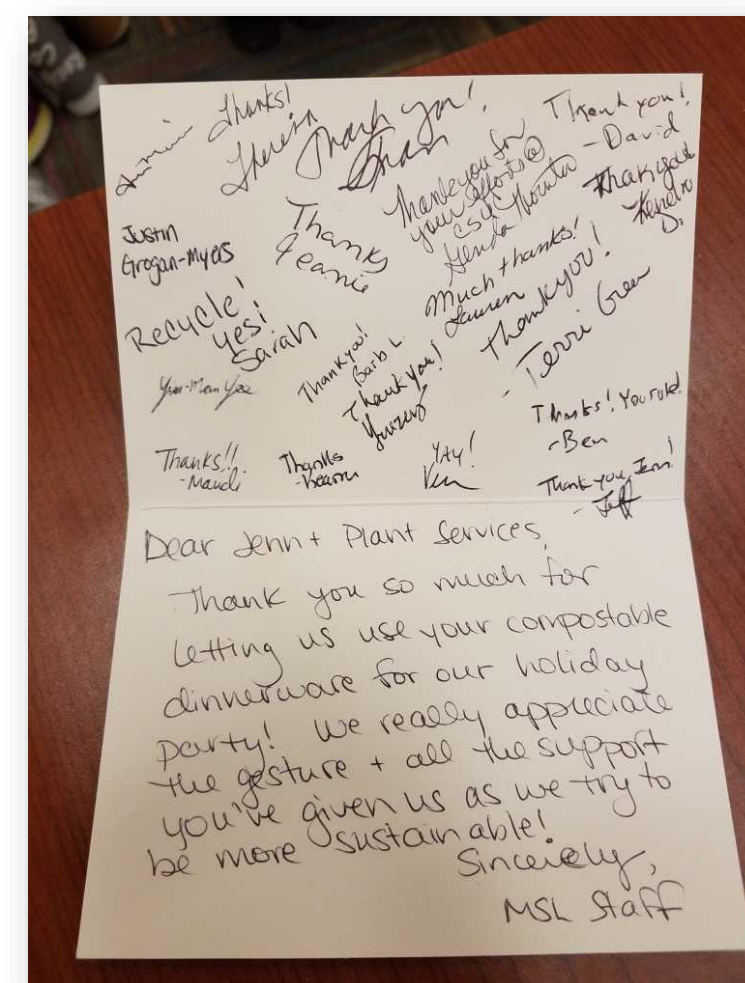 Thanks!
Theresa
Thank you!
Thank you!
- David
Thank you for
your efforts @
CSU
Thank you
Kendra
D.
Justin
Grogan-Myers
Thanks
Jeanie
Much thanks!
Lauren
Thank you!
- Terri Green
Recycle!
Yes!
Sarah
Thank you!
Barb L
Thank you!
Thanks! You rule!
- Ben
Thanks!!
- Mandi
Thanks
YAY!
Thank you, Jenn!
- Jeff
Dear Jenn + Plant Services,
Thank you so much for
letting us use your compostable
dinnerware for our holiday
party! We really appreciate
the gesture + all the support
you've given us as we try to
be more sustainable!
Sincerely,
MSL Staff